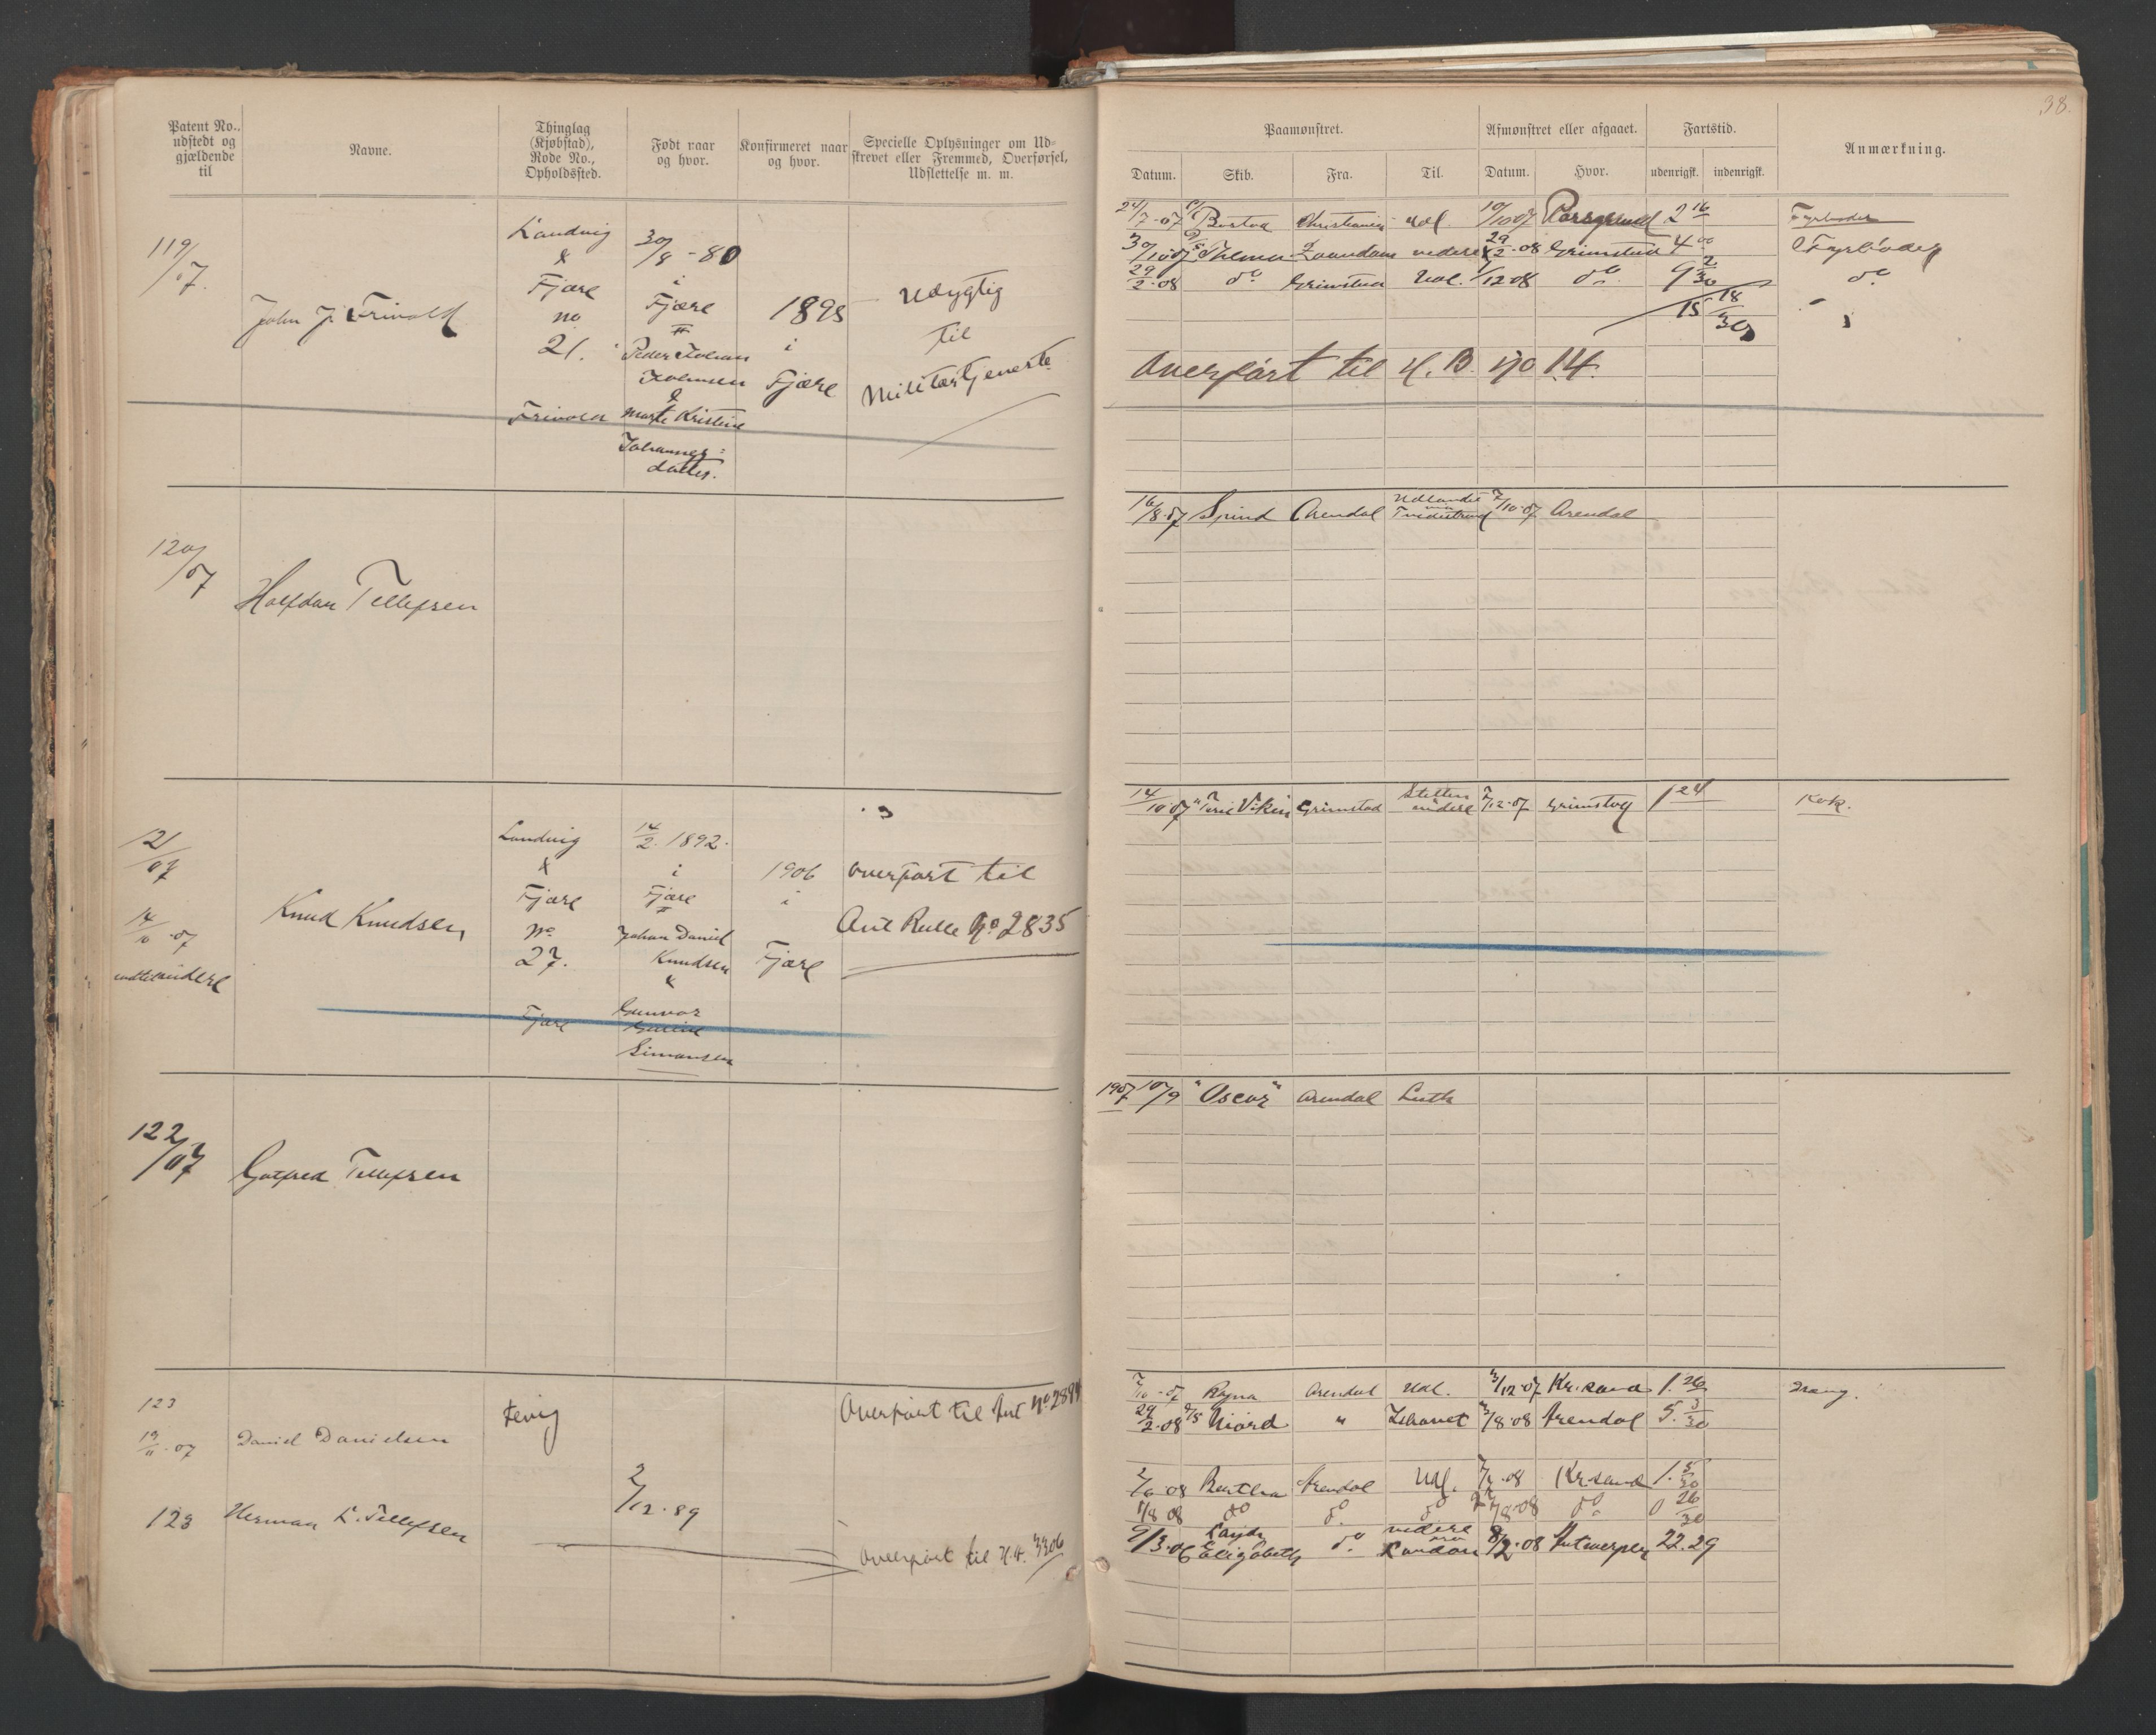 38.
Patent No., udstedt og gjældende til
Navne.
Thinglag (Kjøbstad), Rode No., Opholdssted.
Født naar og hvor.
Konfirmeret naar og hvor.
Specielle Oplysninger om Udskrevet eller Fremmed, Overførsel, Udslettelse m. m.
Paamønstret.
Afmønstret eller afgaaet.
Fartstid.
Anmærkning.
Datum.
Skib.
Fra.
Til.
Datum.
Hvor.
udenrigsk.
indenrigsk.
119/07.
John J. Frivold
Landvig
&
Fjære
no
21.
Frivold
30/8 - 80
i
Fjære
Peder Johan
Johnsen
&
Marte Kristine
Johannes-
datter.
1895
i
Fjære
Udygtig
til
Militærtjeneste
24/7-07 Christiania Udl. 10/10 07 Porsgrund 2 16 Fyrbøder
30/10 07 D/S Thelma Zaandam videre 29/2-08 Grimstad 4 00 Fyrbøder
29/2-08 do Grimstad Udl. 1/12 08 do 9 2/30 do
15 18/30
Overført til H. B. no 14.
120/07
Halfdan Tellefsen
16/8-07 Spind Arendal Udlandet Tvedestrand 7/10-07 Arendal
121/07
14/10 -07
indtil videre
Knud Knudsen
Landvig
&
Fjære
no
27.
Fjære
14/2. 1892.
i
Fjære
Johan Daniel
Knudsen
&
Gunvor
Simonsen
1906
i
Fjære
overført til
Ant Rulle No. 2835
14/10-07 "Terje Viken Grimstad Stettin videre 7/12-07 Grimstad 1 24 Kok.
122/07
Gotfred Tellefsen
1907 10/9 "Oscar" Arendal Leith
123
19/11-07
Daniel Danielsen
Fevig
Overført til Ant No 2894
7/10-07 Ragna Arendal Udl. 3/12-07 Kr.sand 1. 26 Dræng.
29/2-08 D/S Niord " 3/8-08 Arendal 5. 5/30
123
Herman L. Tellefsen
2/12-89
Overført til H.A. 3306
2/6-08 Bertha Arendal Udl. 7/7-08 Kr.sand 1. 5/30
1/8 08 do do. do 27/8-08 do 0 26/30
9/3-06 Lady Elizabeth do. videre London 8/2-08 Antwerpen 22.29